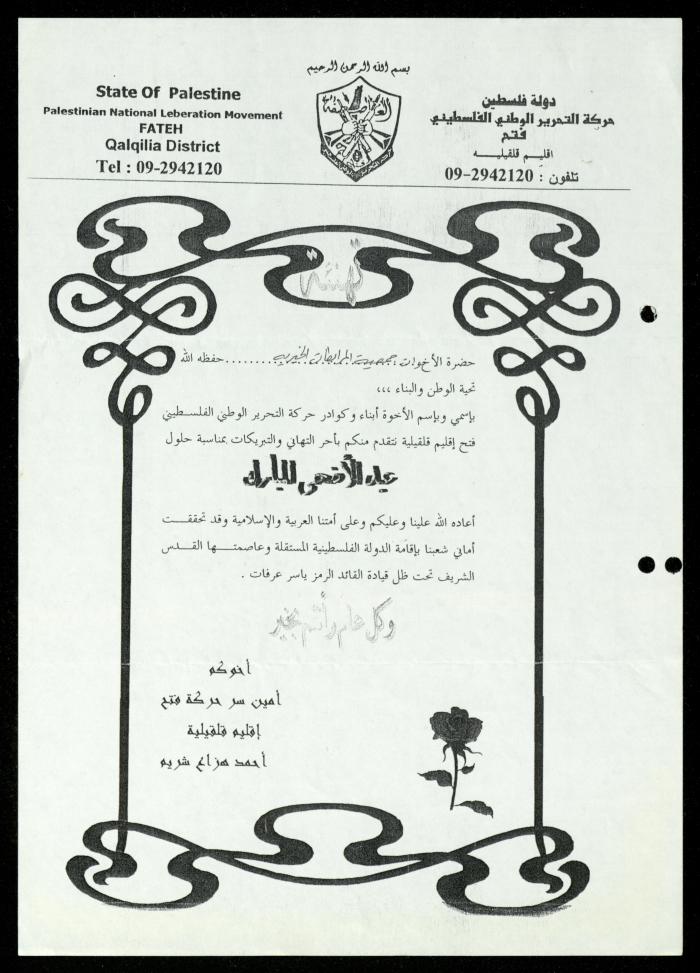 بسم الله الرحمن الرحيم
State Of Palestine
Palestinian National Leberation Movement
FATEH
Qalqilia District
Tel : 09-2942120
دولة فلسطين
حركة التحرير الوطني الفلسطيني
فتح
اقليم قلقيليه
تلفون : 09-2942120
العاصفة
تهنئة
حضرة الأخوات : جمعية المرابطات الخيرية ........ حفظه الله
تحية الوطن والبناء ،،،
بإسمي وبإسم الأخوة أبناء وكوادر حركة التحرير الوطني الفلسطيني
فتح إقليم قلقيلية نتقدم منكم بأحر التهاني والتبريكات بمناسبة حلول
عيد الأضحى المبارك
أعاده الله علينا وعليكم وعلى أمتنا العربية والإسلامية وقد تحققت
أماني شعبنا بإقامة الدولة الفلسطينية المستقلة وعاصمتها القدس
الشريف تحت ظل قيادة القائد الرمز ياسر عرفات .
وكل عام وأنتم بخير
أخوكم
أمين سر حركة فتح
إقليم قلقيلية
أحمد هزاع شريم